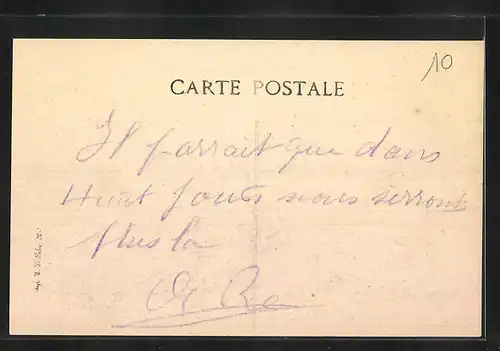 10
CARTE POSTALE
Il parrait que dans
Huit Jours nous serrons
plus la